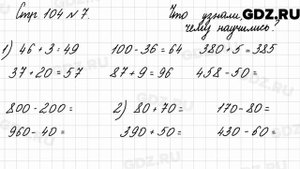 Стр 104 № 7.
Что узнали,
чему научились?
1) 46 + 3 = 49 100 - 36 = 64 380 + 5 = 385
37 + 20 = 57 87 + 9 = 96 458 - 50 =
800 - 200 = 2) 80 + 70 = 170 - 80 =
960 - 40 = 390 + 50 = 430 - 60 =
GDZ.RU